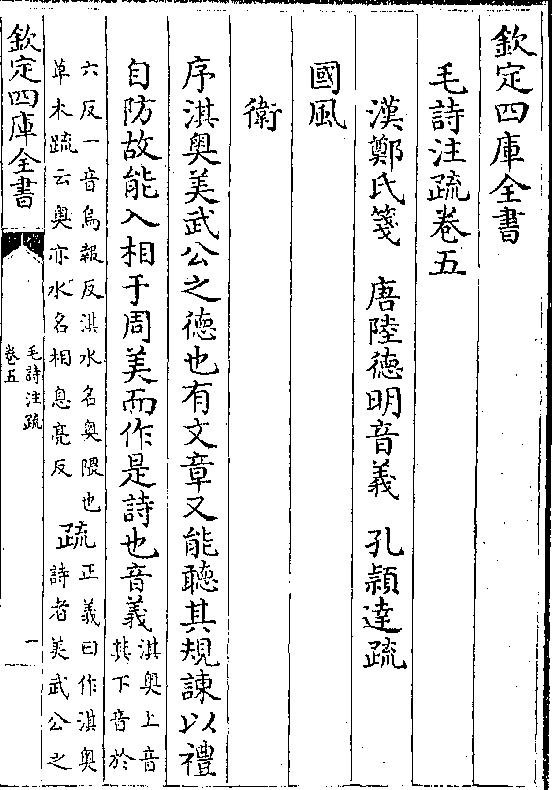 欽定四庫全書
毛詩注疏卷五
漢鄭氏箋　唐陸德明音義　孔穎達疏
國風
衛
序淇奥美武公之德也有文章又能聽其規諫以禮
自防故能入相于周美而作是詩也音義
淇奥上音
其下音於
六反一音烏報反淇水名奥隈也
草木疏云奥亦水名相息亮反
疏
正義曰作淇奥
詩者美武公之
欽定四庫全書
毛詩注疏
卷五
一